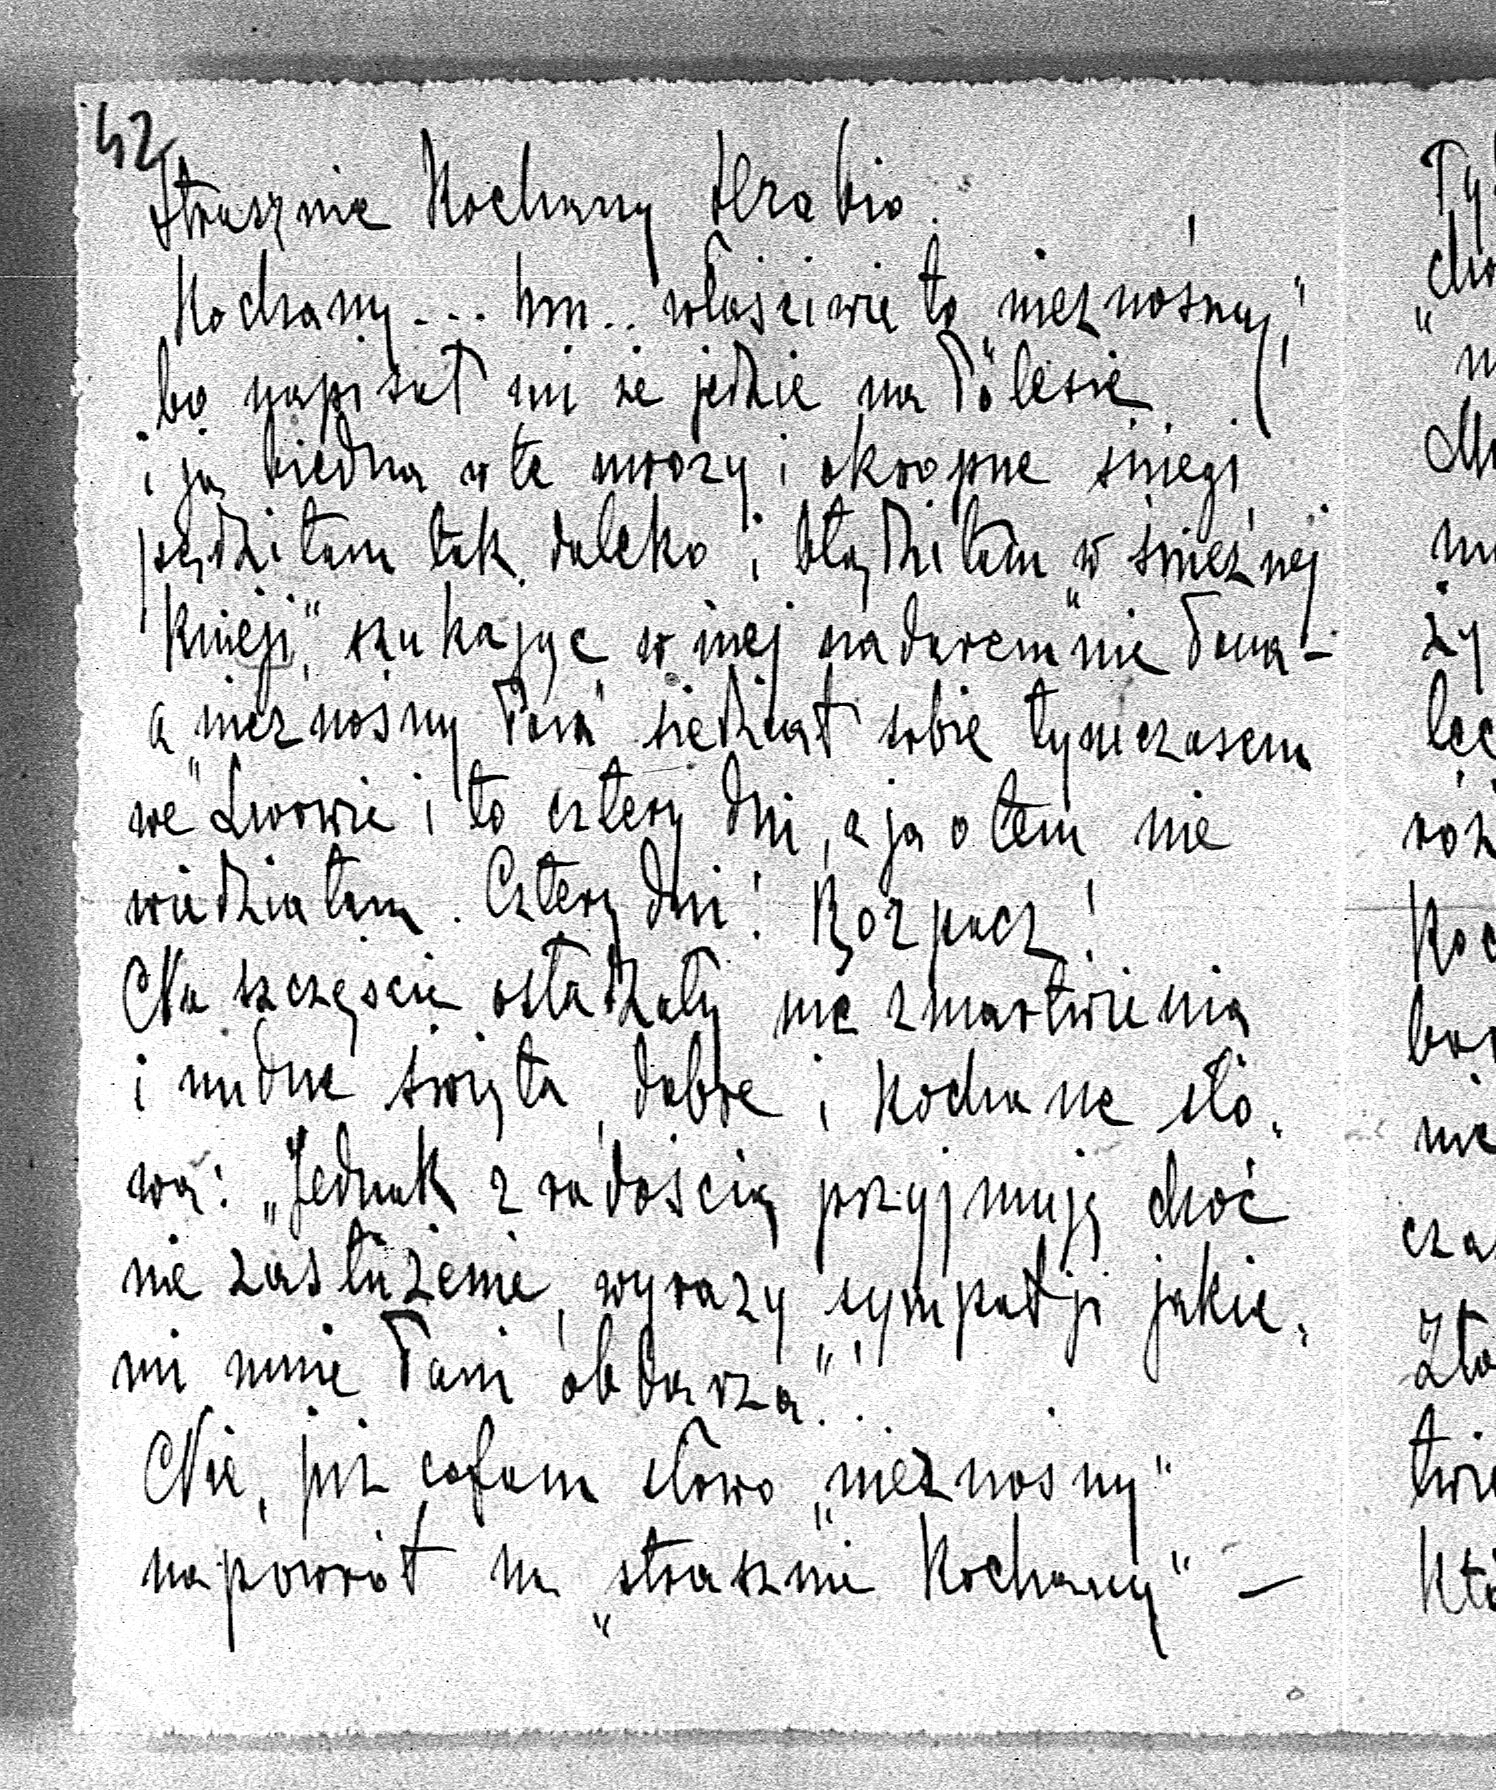 42
Strasznie Kochany Hrabio.
Kochany... hm.. właściwie to „nieznośny",
bo napisał mi że jedzie na Polesie
i ja biedna w te mrozy i okropne śniegi
pędziłam tak daleko i błądziłam w śnieżnej
„Kniei", szukając w niej nadaremnie Pana –
a „nieznośny Pan" siedział sobie tymczasem
we Lwowie i to cztery dni, a ja o tem nie
wiedziałam. Cztery dni! Rozpacz!
Na szczęście osładzały me zmartwienia
i nudne święta, dobre i kochane sło-
wa: „Jednak z radością przyjmuję choć
nie zasłużenie, wyrazy sympatji jakie-
mi mnie Pani obdarza"..
Nie, już cofam słowo „nieznośny"
napowrót na „strasznie Kochany" –
Ty
„cho
m
Mo
ży
lec
róż
Koc
bo
nie
cza
zło
twie
któ